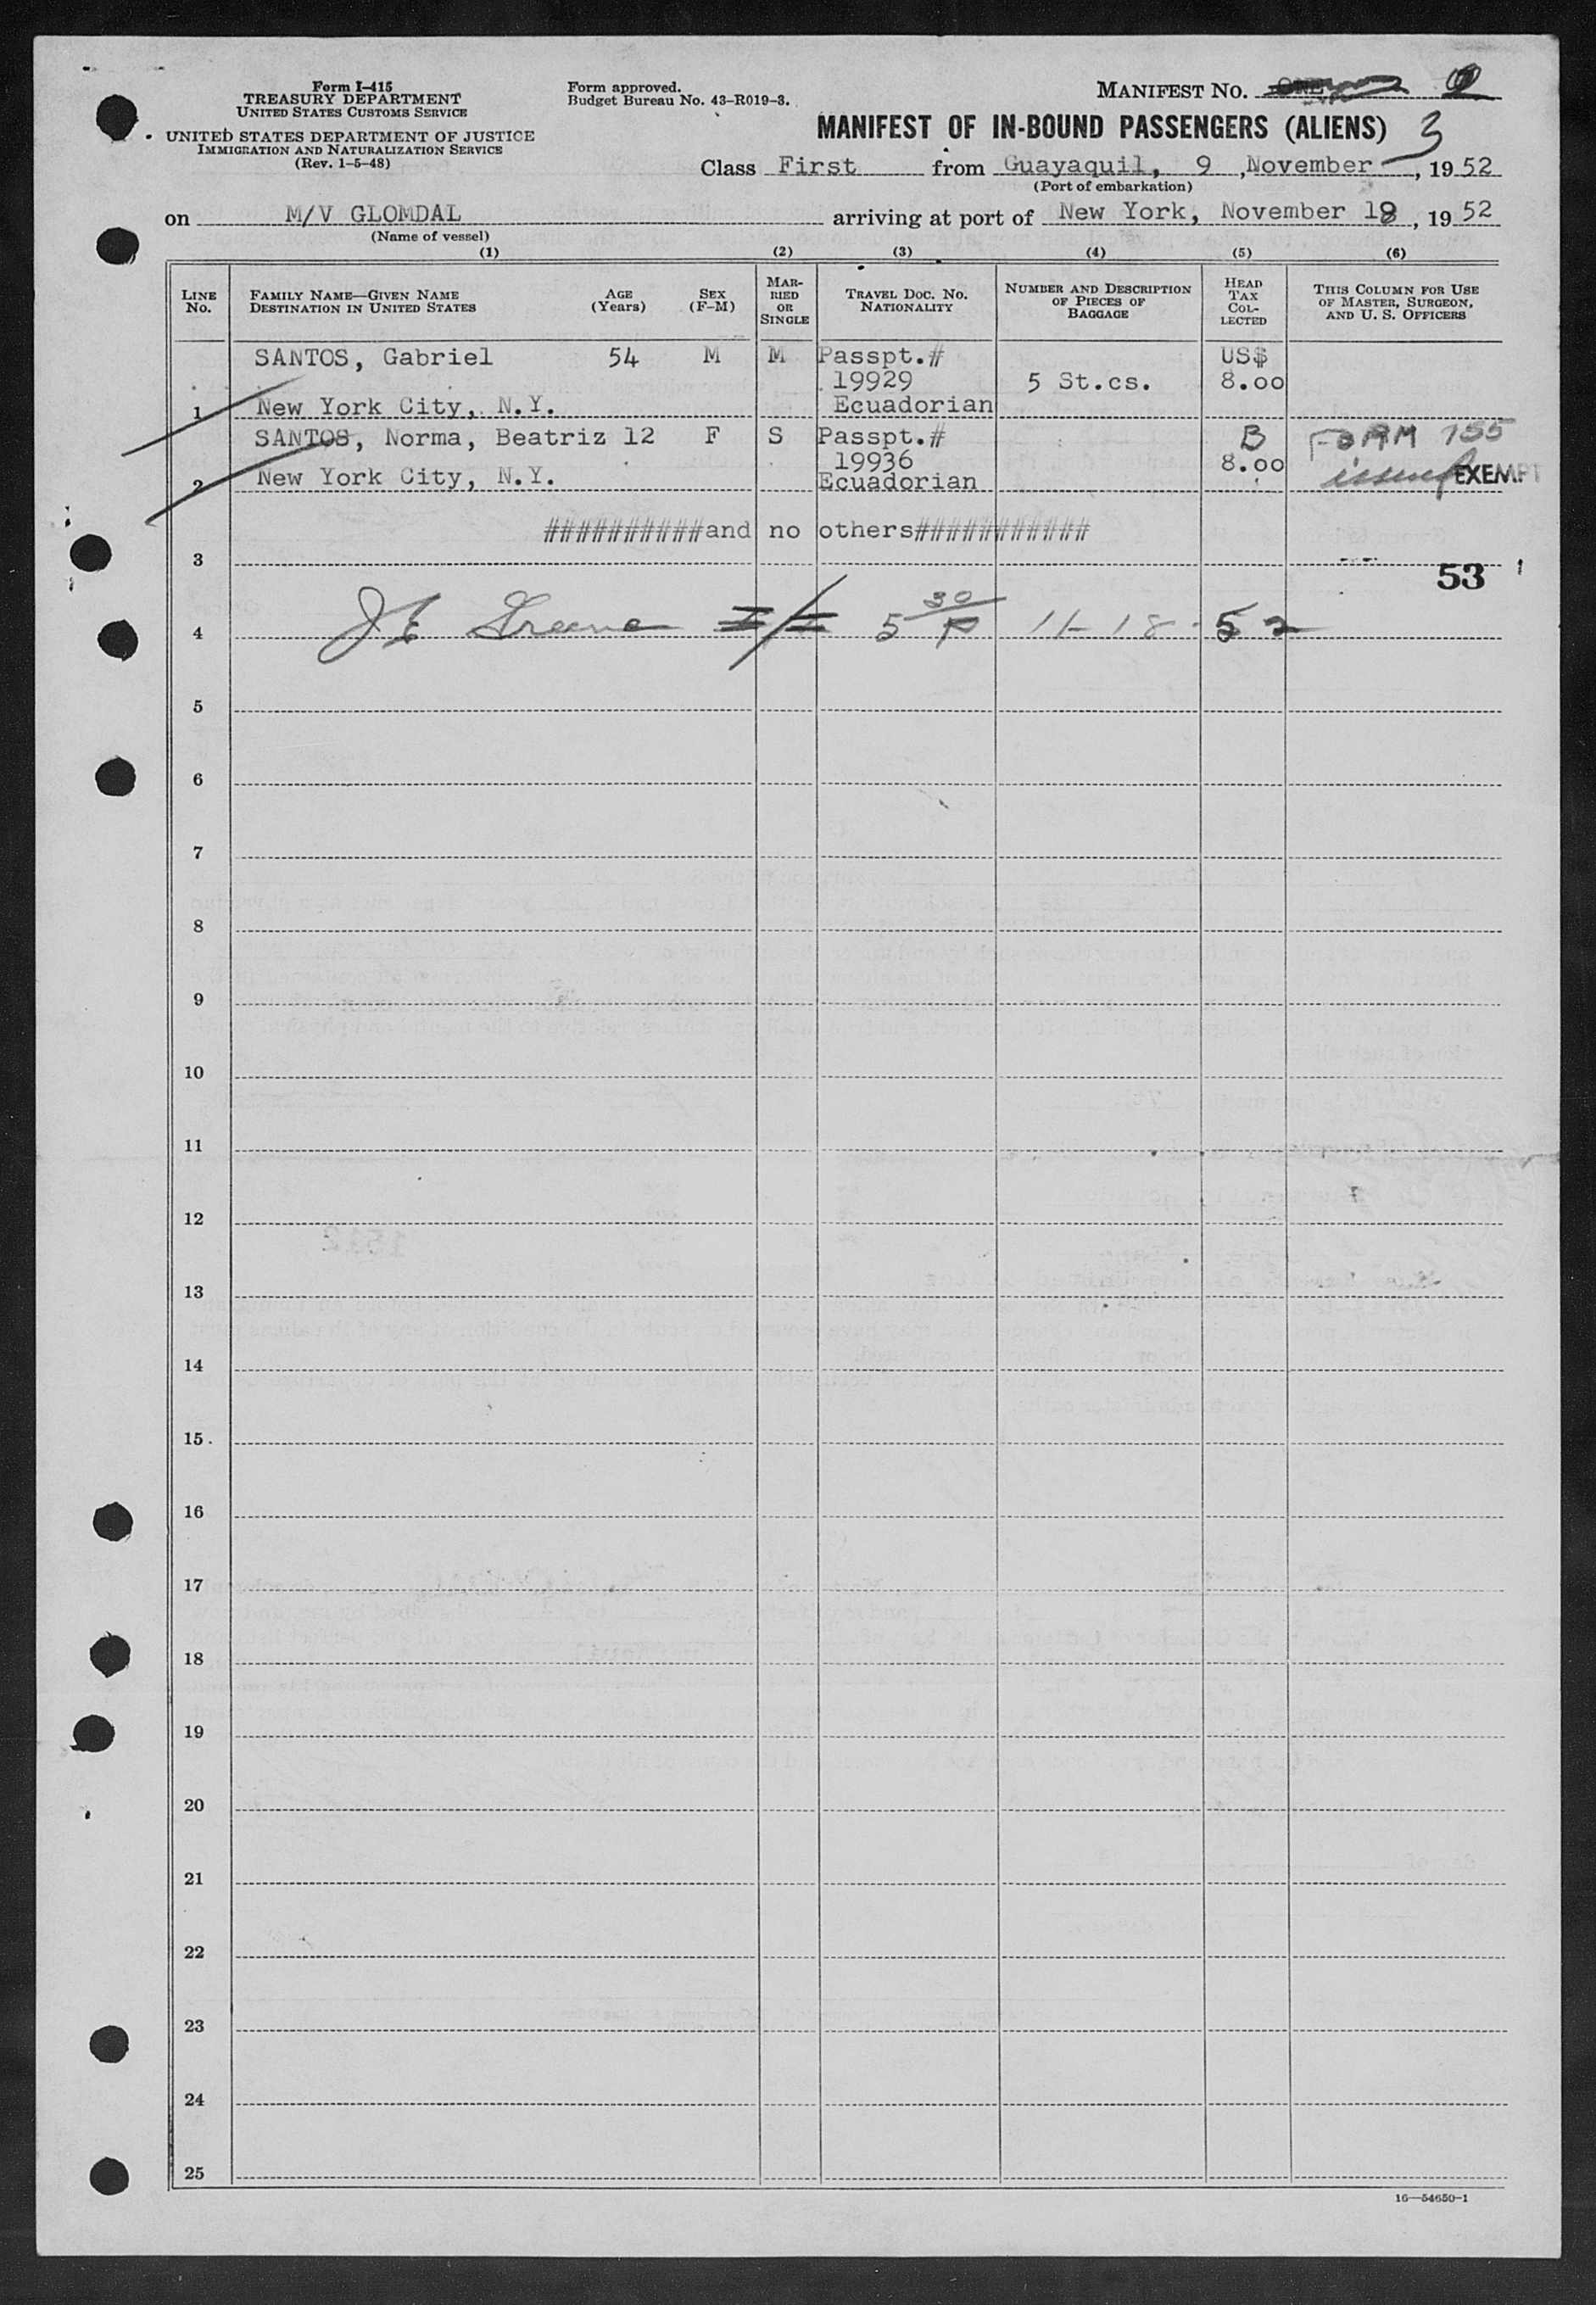 Form I-415
TREASURY DEPARTMENT
UNITED STATES CUSTOMS SERVICE
UNITED STATES DEPARTMENT OF JUSTICE
IMMIGRATION AND NATURALIZATION SERVICE
(Rev. 1-5-48)
Form approved.
Budget Bureau No. 43-R019-3.
MANIFEST NO.
MANIFEST OF IN-BOUND PASSENGERS (ALIENS) 3
Class First from Guayaquil, 9, November, 19 52
(Port of embarkation)
on M/V GLOMDAL arriving at port of New York, November 18, 19 52
(Name of vessel)
(1) (2) (3) (4) (5) (6)
LINE No.
FAMILY NAME—GIVEN NAME
DESTINATION IN UNITED STATES
AGE (Years)
SEX (F-M)
MARRIED OR SINGLE
TRAVEL DOC. NO.
NATIONALITY
NUMBER AND DESCRIPTION OF PIECES OF BAGGAGE
HEAD TAX COLLECTED
THIS COLUMN FOR USE OF MASTER, SURGEON, AND U. S. OFFICERS
SANTOS, Gabriel 54 M M Passpt.# US$
19929 5 St.cs. 8.00
1 New York City, N.Y. Ecuadorian
SANTOS, Norma, Beatriz 12 F S Passpt.# B FORM 155
19936 8.00 issued EXEMPT
2 New York City, N.Y. Ecuadorian
##########and no others###########
3
53
4 J E Greene I/I 5 30/P 11-18-52
5
6
7
8
9
10
11
12
13
14
15
16
17
18
19
20
21
22
23
24
25
16—54650-1